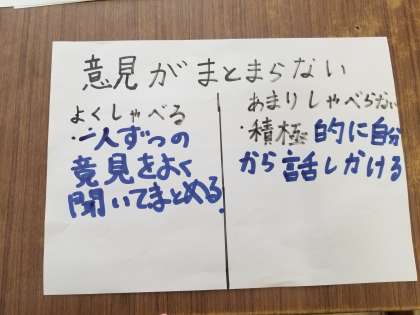 意見がまとまらない
よくしゃべる
・一人ずつの
意見をよく
聞いてまとめる。
あまりしゃべらない
・積極的に自分
から話しかける